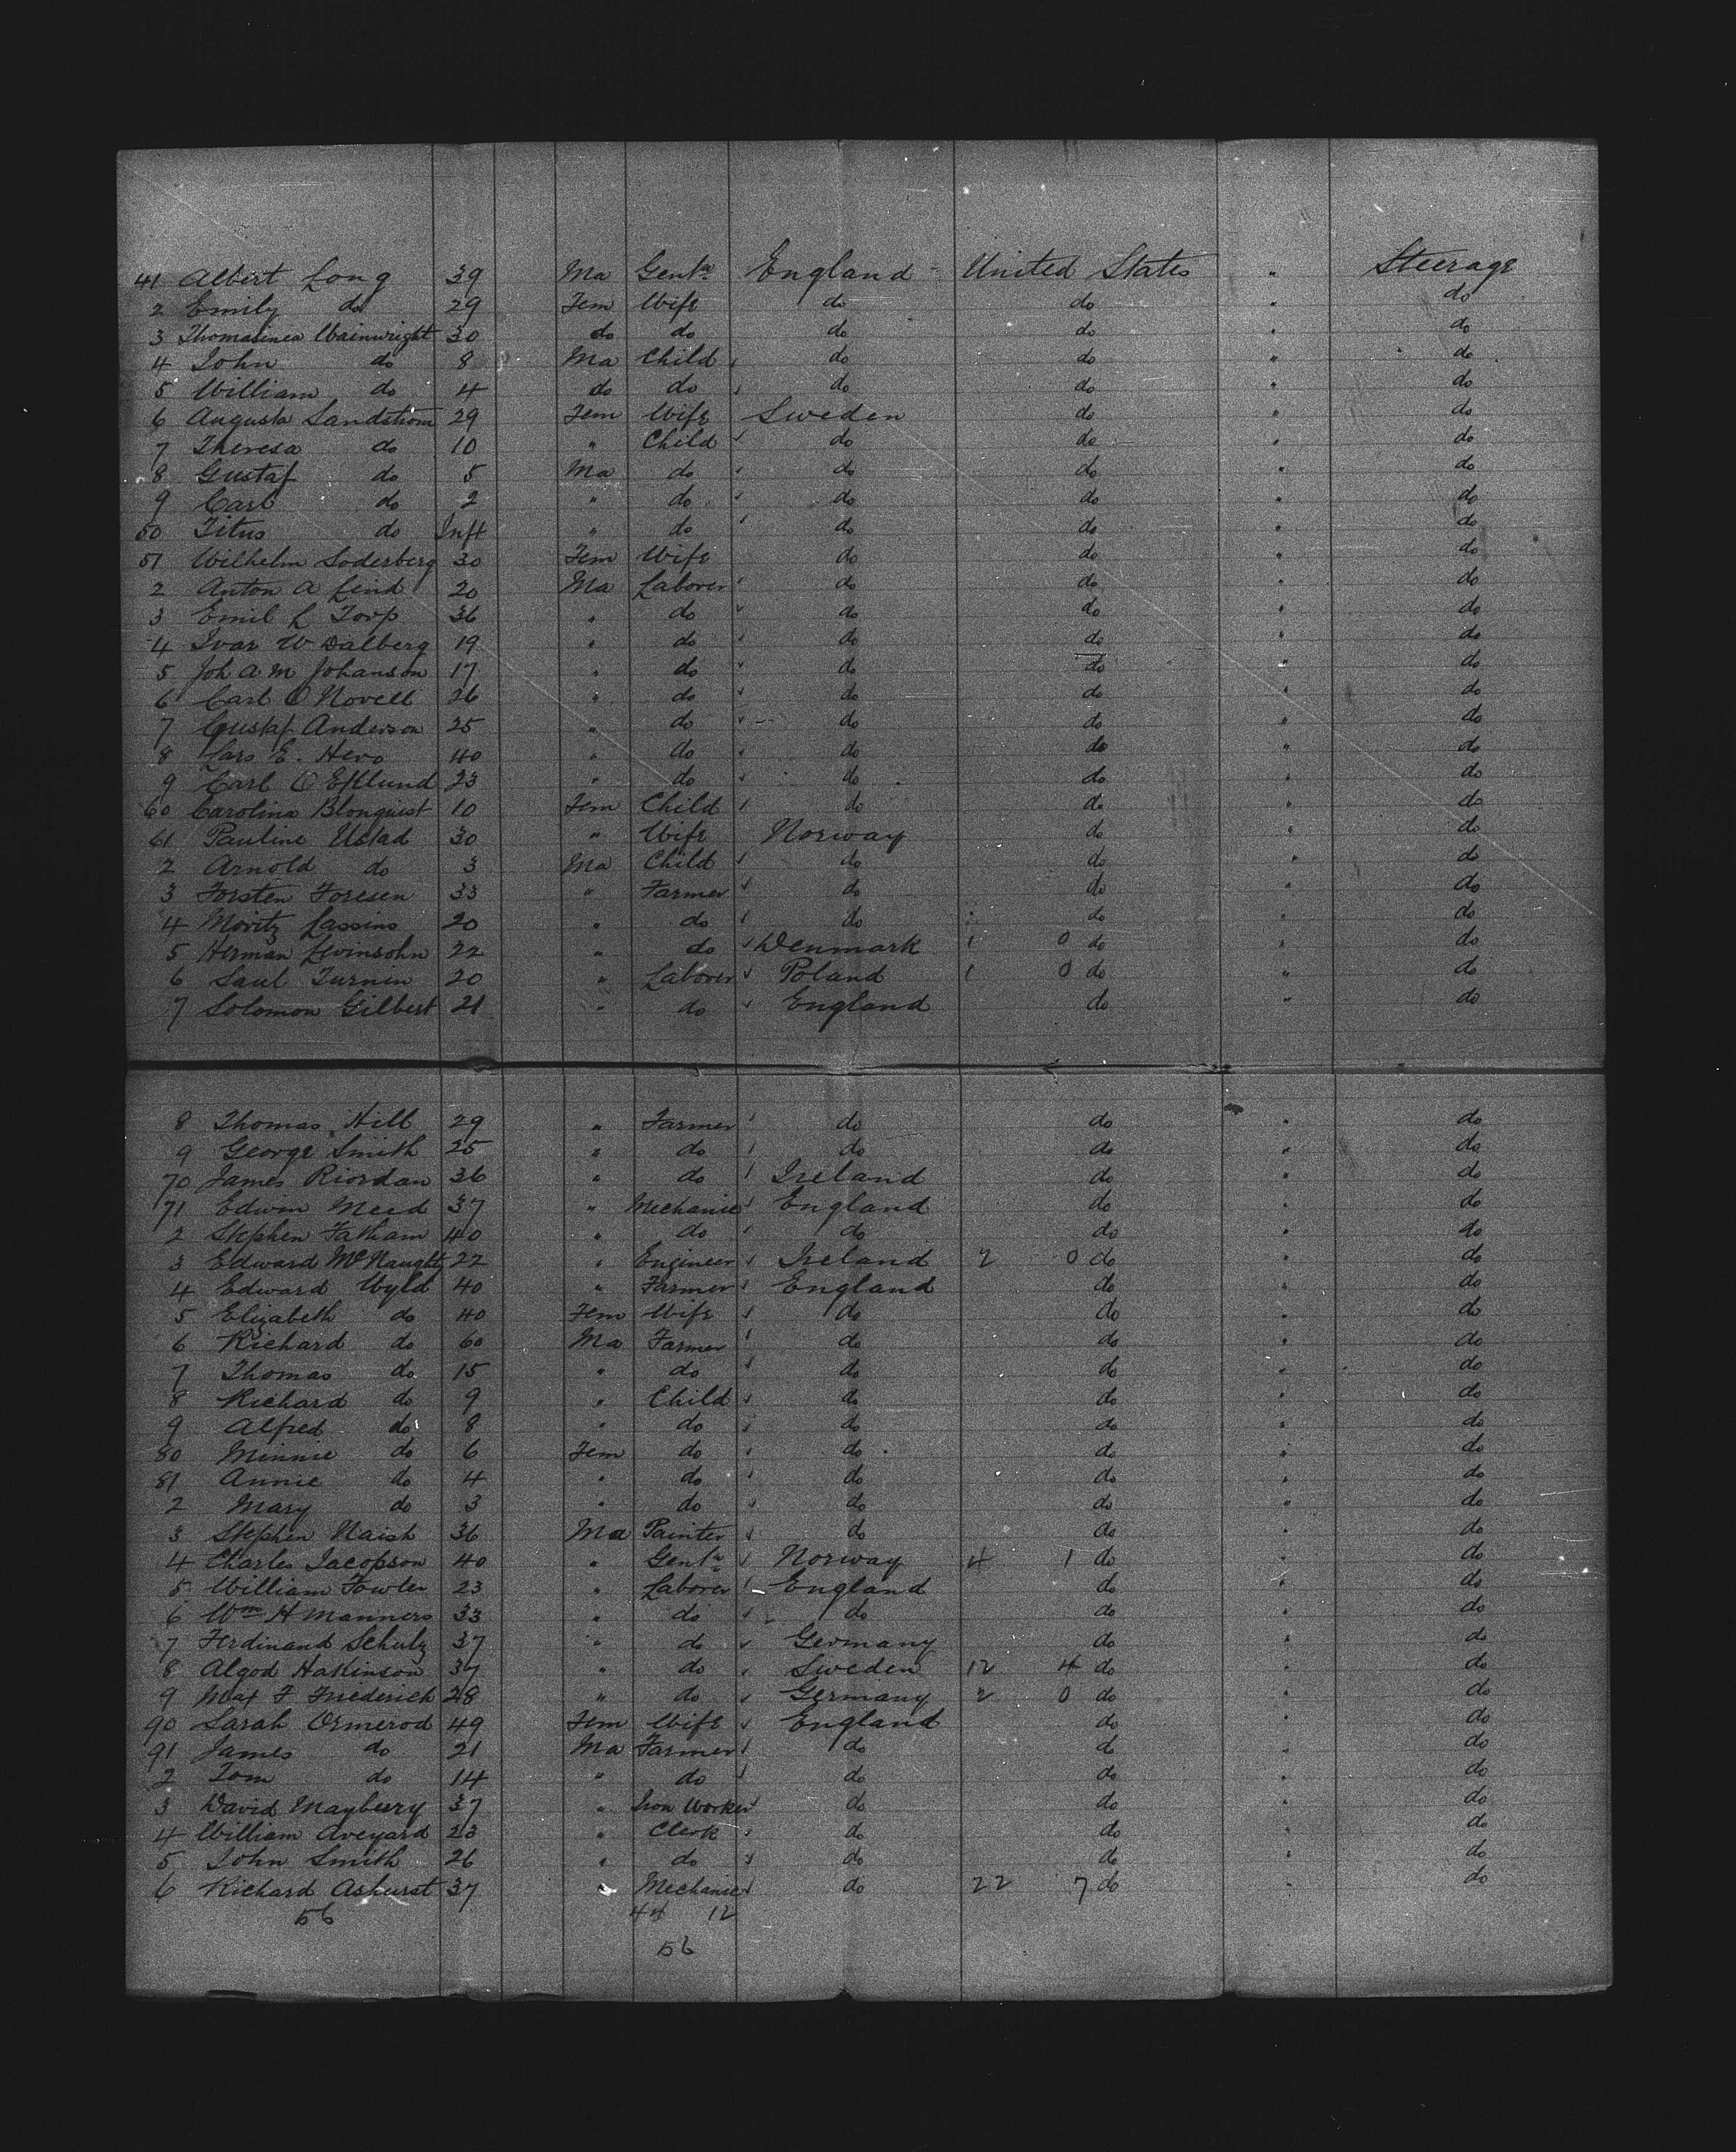 41 Albert Long 39 Ma Gentn England United States " Steerage
2 Emily do 29 Fem Wife do do " do
3 Thomasinea Wainwright 30 do do do do " do
4 John do 8 Ma Child do do " do
5 William do 4 do do do do " do
6 Augusta Sandstrom 29 Fem Wife Sweden do " do
7 Theresa do 10 " Child do do " do
8 Gustaf do 5 Ma do do do " do
9 Carl do 2 " do do do " do
50 Titus do Inft " do do do " do
51 Wilhelm Soderberg 30 Fem Wife do do " do
2 Anton A Lind 20 Ma Laborer do do " do
3 Emil L Torp 36 " do do do " do
4 Ivar W Dalberg 19 " do do do " do
5 Joh A M Johanson 17 " do do do " do
6 Carl O Novell 26 " do do do " do
7 Gustaf Anderson 25 " do do do " do
8 Lars E. Hevo 40 " do do do " do
9 Carl O Eklund 23 " do do do " do
60 Carolina Blonquist 10 Fem Child do do " do
61 Pauline Ustad 30 " Wife Norway do " do
2 Arnold do 3 Ma Child do do " do
3 Torsten Toresen 33 " Farmer do do " do
4 Moritz Lassins 20 " do do do " do
5 Herman Levinsohn 22 " do Denmark 1 0 do " do
6 Saul Turnin 20 " Laborer Poland 1 0 do " do
7 Solomon Gilbert 21 " do England do " do
8 Thomas Hill 29 " Farmer do do " do
9 George Smith 25 " do do do " do
70 James Riordan 36 " do Ireland do " do
71 Edwin Meed 37 " Mechanic England do " do
2 Stephen Fatham 40 " do do do " do
3 Edward McNaught 22 " Engineer Ireland 2 0 do " do
4 Edward Wyld 40 " Farmer England do " do
5 Elizabeth do 40 Fem Wife do do " do
6 Richard do 60 Ma Farmer do do " do
7 Thomas do 15 " do do do " do
8 Richard do 9 " Child do do " do
9 Alfred do 8 " do do do " do
80 Minnie do 6 Fem do do do " do
81 Annie do 4 " do do do " do
2 Mary do 3 " do do do " do
3 Stephen Naish 36 Ma Painter do do " do
4 Charles Jacopson 40 " Gentn Norway 4 1 do " do
5 William Fowler 23 " Laborer England do " do
6 Wm H Manners 33 " do do do " do
7 Ferdinand Schulz 37 " do Germany do " do
8 Algod Hakinson 37 " do Sweden 12 4 do " do
9 Max F Friederich 28 " do Germany 2 0 do " do
90 Sarah Ormerod 49 Fem Wife England do " do
91 James do 21 Ma Farmer do do " do
2 Tom do 14 " do do do " do
3 David Mayberry 37 " Iron Worker do do " do
4 William Aveyard 23 " Clerk do do " do
5 John Smith 26 " do do do " do
6 Richard Ashurst 37 " Mechanic do 22 7 do " do
56 44 12
56